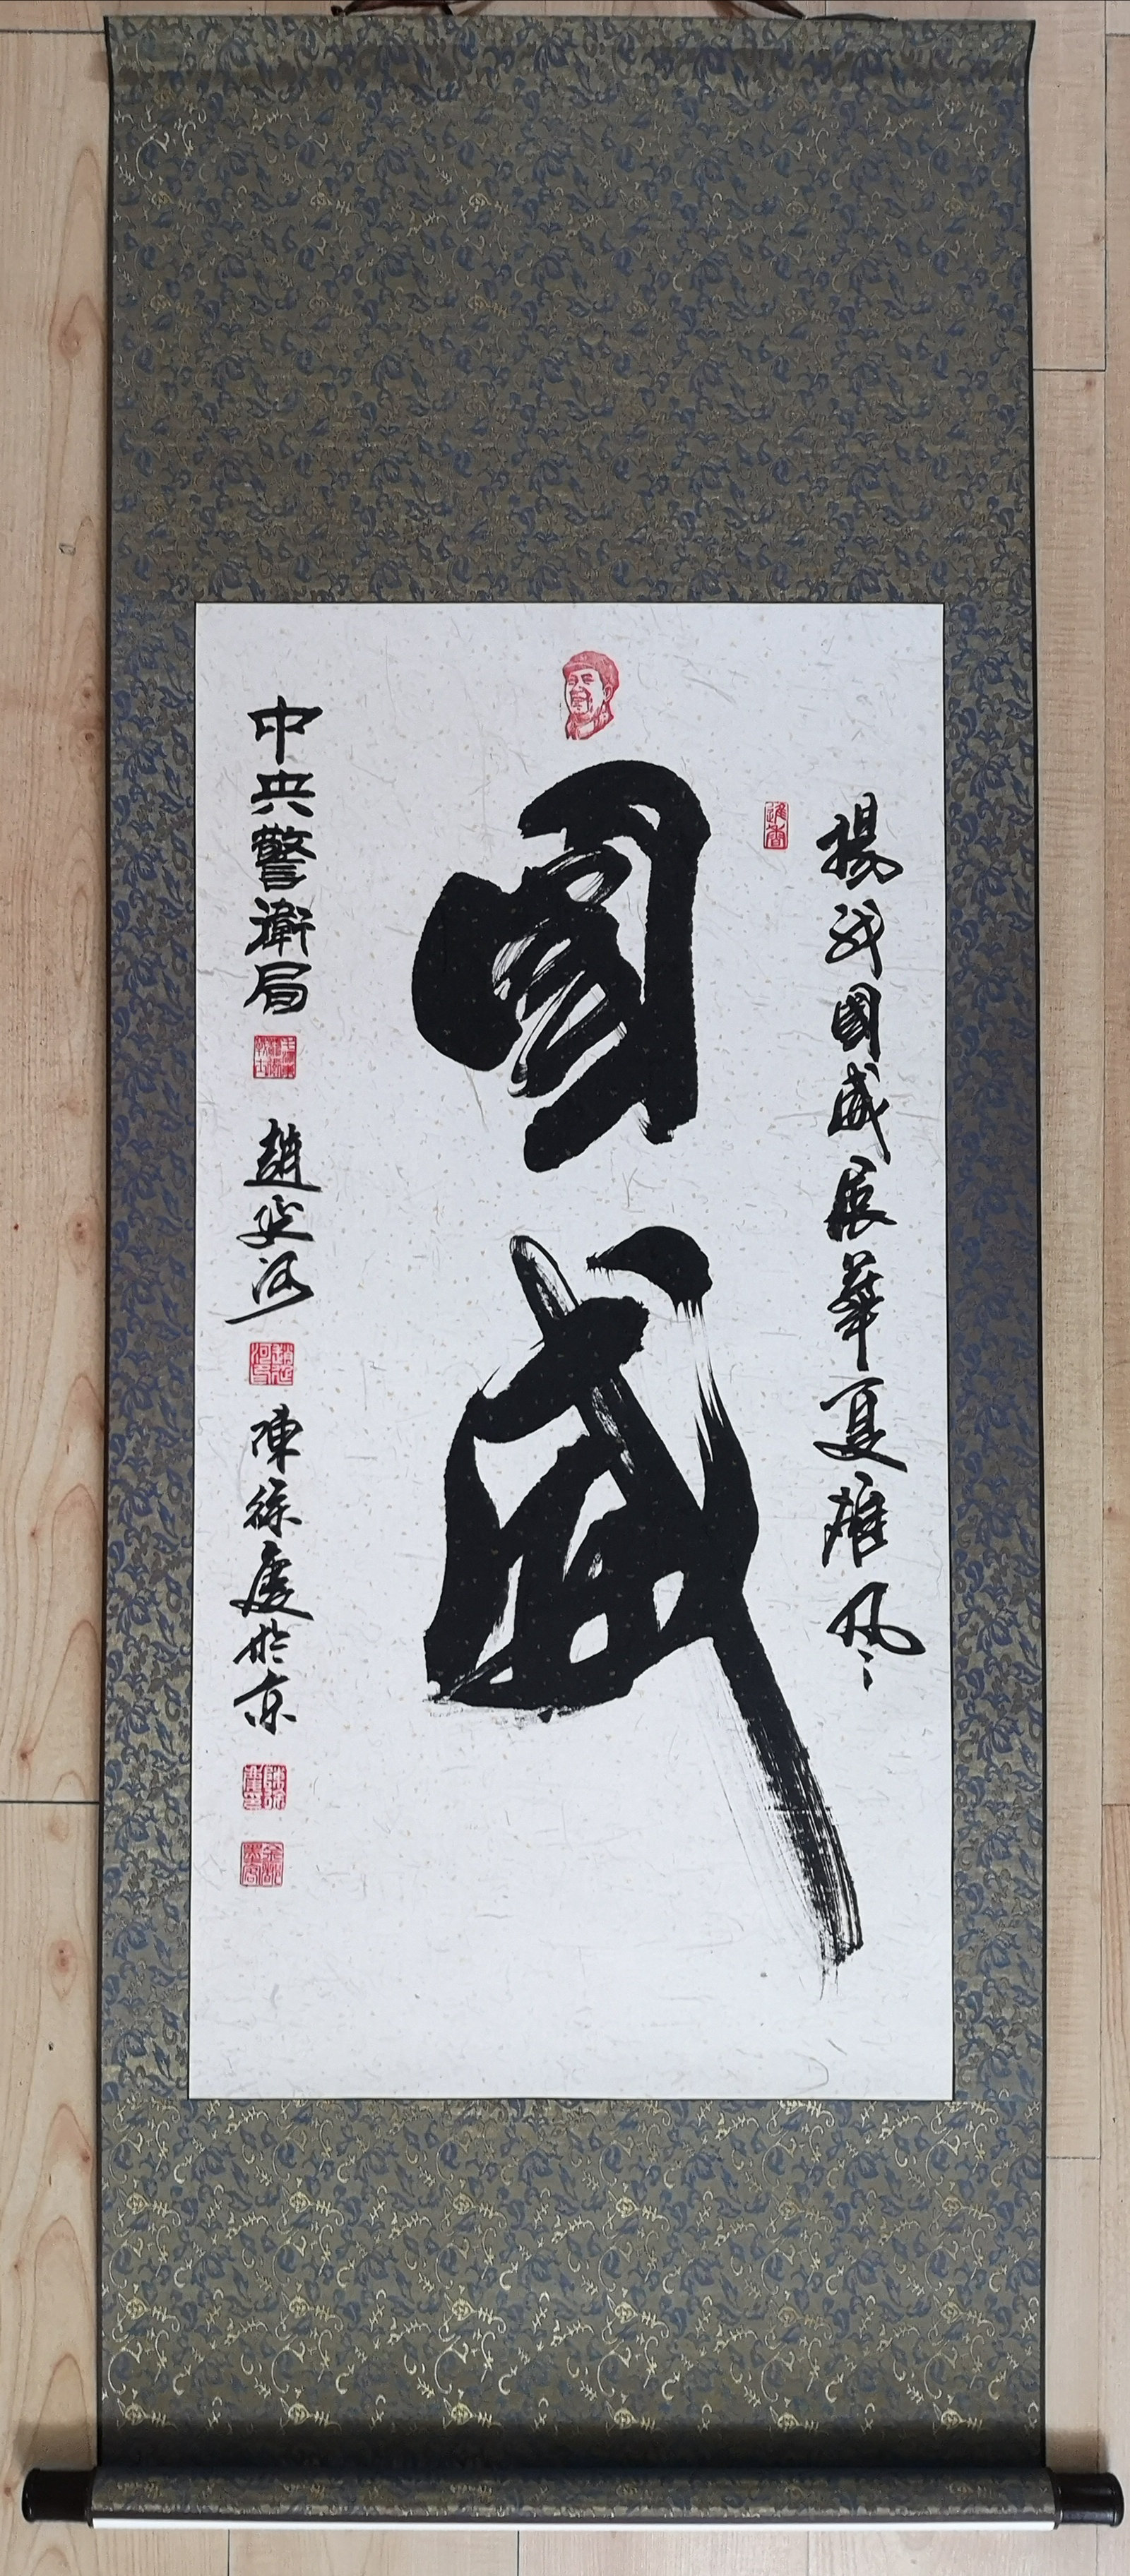 揚我國威展華夏雄風
國威
中央警衛局
趙延河
陳徐慶於京